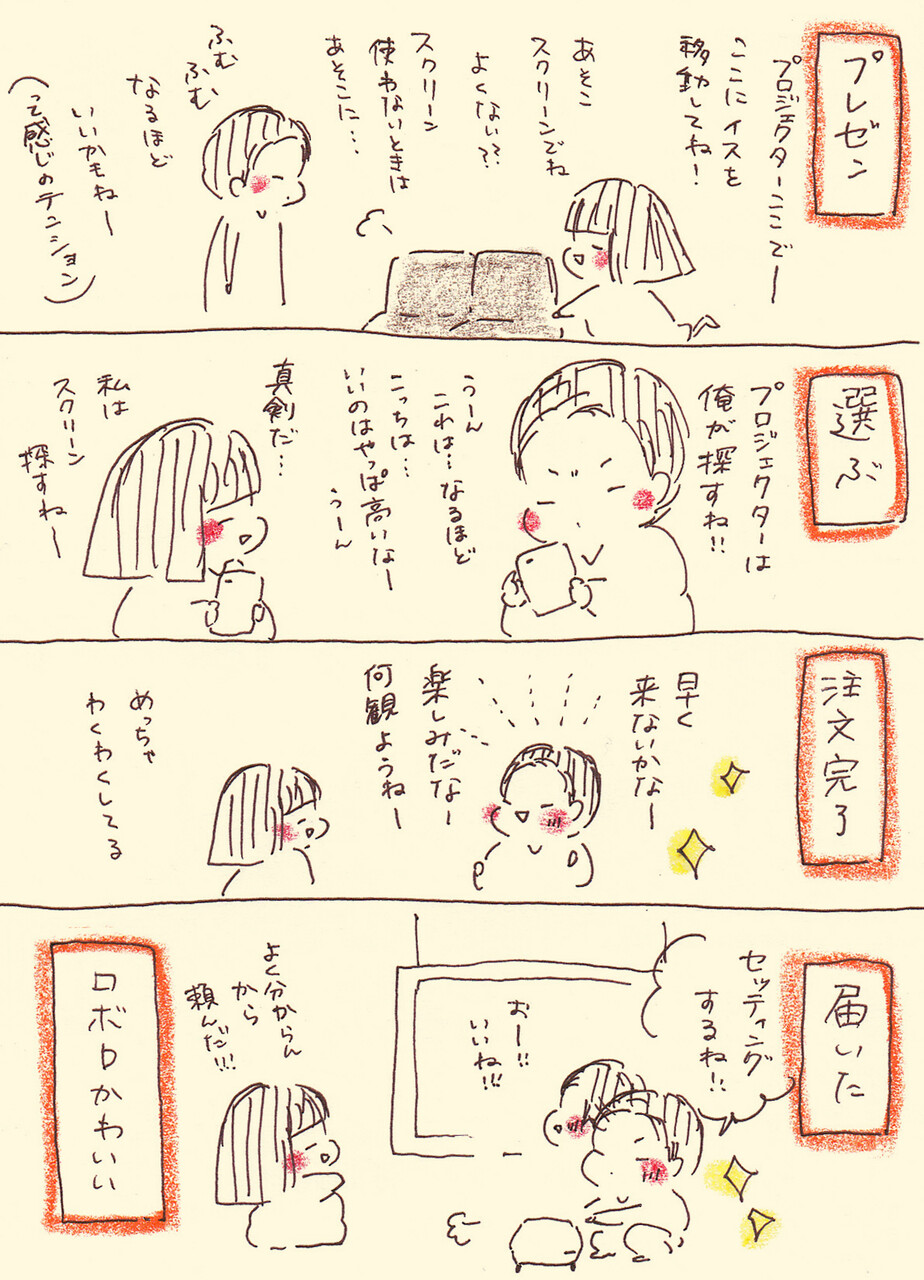 プレゼン
プロジェクターここでー
ここにイスを
移動してね！
あそこ
スクリーンでね
よくない??
スクリーン
使わないときは
あそこに…
ふむ
ふむ
なるほど
いいかもねー
(って感じのテンション)
選ぶ
プロジェクターは
俺が探すね!!
うーん
これは…なるほど
こっちは…
いいのはやっぱ高いなー
うーん
真剣だ…
私は
スクリーン
探すねー
注文完了
早く
来ないかなー
楽しみだなー
何観ようねー
めっちゃ
わくわくしてる
届いた
セッティング
するね!!
おー!!
いいね!!!
よく分からん
から
頼んだ!!!
ロボロかわいい